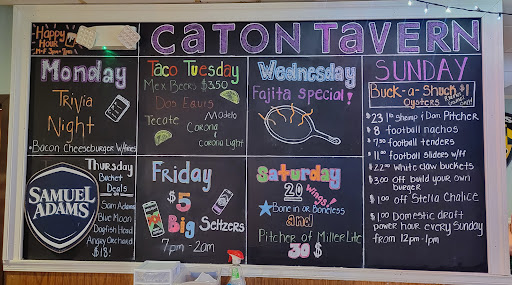 Happy
Hour
M-F 3pm-7pm
CATON TAVERN
Monday
Trivia
Night
Bacon Cheeseburger w/fries
Taco Tuesday
Mex Beers $3.50
Dos Equis
Tecate
Modelo
Corona
Corona Light
Wednesday
Fajita Special!
SUNDAY
Buck-a-Shuck $1
Oysters
$23 1lb shrimp & Dom Pitcher
$8 football nachos
$7.50 football tenders
$11.00 football sliders w/ff
$22.00 white claw buckets
$3.00 off build your own
burger
$1.00 off Stella Chalice
$1.00 Domestic draft
power hour every Sunday
from 12pm-1pm
Thursday
Bucket
Deals
SAMUEL
ADAMS
Sam Adams
Blue Moon
Dogfish Head
Angry Orchard
$18!
Friday
$5
Big Seltzers
7pm-2am
Saturday
20 wings!
Bone in or Boneless
and
Pitcher of Miller Lite
30 $